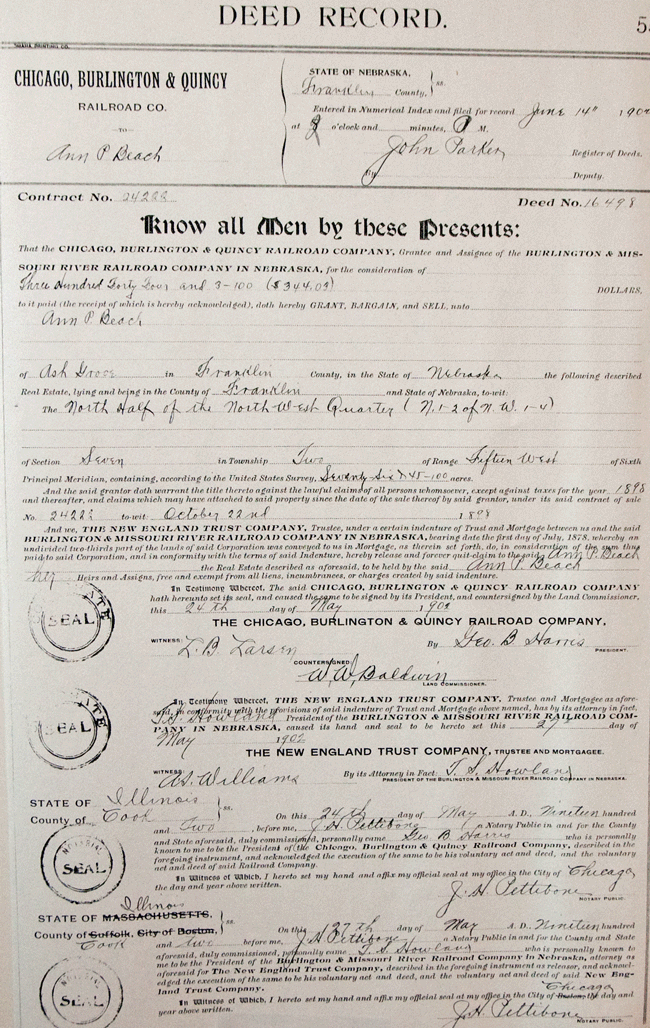 DEED RECORD.
CHICAGO, BURLINGTON & QUINCY
RAILROAD CO.
—TO—
Ann P Beach
STATE OF NEBRASKA, ss.
Franklin County.
Entered in Numerical Index and filed for record June 14" 190
at o'clock and minutes, M.
John Parker Register of Deeds.
By Deputy.
Contract No. 24222 Deed No. 16498
Know all Men by these Presents:
That the CHICAGO, BURLINGTON & QUINCY RAILROAD COMPANY, Grantee and Assignee of the BURLINGTON & MIS-
SOURI RIVER RAILROAD COMPANY IN NEBRASKA, for the consideration of
Three Hundred Forty Four and 3-100 ($344.03) DOLLARS,
to it paid (the receipt of which is hereby acknowledged), doth hereby GRANT, BARGAIN, and SELL, unto
Ann P. Beach
of Ash Grove in Franklin County, in the State of Nebraska the following described
Real Estate, lying and being in the County of Franklin and State of Nebraska, to-wit:
The North Half of the North West Quarter (N. 1-2 of N. W. 1-4)
of Section Seven in Township Two of Range Fifteen West of Sixth
Principal Meridian, containing, according to the United States Survey, Seventy Six & 45-100 acres.
And the said grantor doth warrant the title thereto against the lawful claims of all persons whomsoever, except against taxes for the year 1898
and thereafter, and claims which may have attached to said property since the date of the sale thereof by said grantor, under its said contract of sale
No. 24222 to-wit: October 22nd 1898
And we, THE NEW ENGLAND TRUST COMPANY, Trustee, under a certain indenture of Trust and Mortgage between us and the said
BURLINGTON & MISSOURI RIVER RAILROAD COMPANY IN NEBRASKA, bearing date the first of July, 1878, whereby an
undivided two-thirds part of the lands of said Corporation was conveyed to us in Mortgage, as therein set forth, do, in consideration of the sum thus
paid to said Corporation, and in conformity with the terms of said Indenture, hereby release and forever quit claim to the said Ann P. Beach
the Real Estate described as aforesaid, to be held by the said Ann P. Beach
her Heirs and Assigns, free and exempt from all liens, incumbrances, or charges created by said indenture.
In Testimony Whereof, The said CHICAGO, BURLINGTON & QUINCY RAILROAD COMPANY
hath hereunto set its seal, and caused the same to be signed by its President, and countersigned by the Land Commissioner,
this 24th day of May 190
SEAL
THE CHICAGO, BURLINGTON & QUINCY RAILROAD COMPANY,
WITNESS: L. B. Larsen By Geo. B. Harris PRESIDENT.
COUNTERSIGNED
W. W. Baldwin
LAND COMMISSIONER.
In Testimony Whereof, THE NEW ENGLAND TRUST COMPANY, Trustee and Mortgagee as afore-
said, in conformity with the provisions of said indenture of Trust and Mortgage above named, has by its attorney in fact,
T. S. Howland President of the BURLINGTON & MISSOURI RIVER RAILROAD COM-
PANY IN NEBRASKA, caused its hand and seal to be hereto set this 27 day of
May 1902
SEAL
THE NEW ENGLAND TRUST COMPANY, TRUSTEE AND MORTGAGEE.
WITNESS: Williams By its Attorney in Fact: T. S. Howland
PRESIDENT OF THE BURLINGTON & MISSOURI RIVER RAILROAD COMPANY IN NEBRASKA.
STATE OF Illinois ss.
County of Cook
On this 24th day of May A. D., Nineteen hundred
and Two, before me, J. H. Pettibone, a Notary Public in and for the County
and State aforesaid, duly commissioned, personally came Geo B. Harris who is personally
known to me to be the President of the Chicago, Burlington & Quincy Railroad Company, described in the
foregoing instrument, and acknowledged the execution of the same to be his voluntary act and deed, and the voluntary
act and deed of said Railroad Company.
In Witness of Which, I hereto set my hand and affix my official seal at my office in the City of Chicago
the day and year above written.
SEAL
J. H. Pettibone
NOTARY PUBLIC.
Illinois
STATE OF MASSACHUSETTS, ss.
County of Suffolk, City of Boston,
Cook
On this 27th day of May A. D., Nineteen hundred
and two before me, J. H. Pettibone a Notary Public in and for the County and State
aforesaid, duly commissioned, personally came T. S. Howland who is personally known to
me to be the President of the Burlington & Missouri River Railroad Company in Nebraska, attorney as
aforesaid for The New England Trust Company, described in the foregoing instrument as releasor, and acknowl-
edged the execution of the same to be his voluntary act and deed, and the voluntary act and deed of said New Eng-
land Trust Company.
Chicago
In Witness of Which, I hereto set my hand and affix my official seal at my office in the City of Boston, the day and
year above written.
SEAL
J. H. Pettibone
NOTARY PUBLIC.